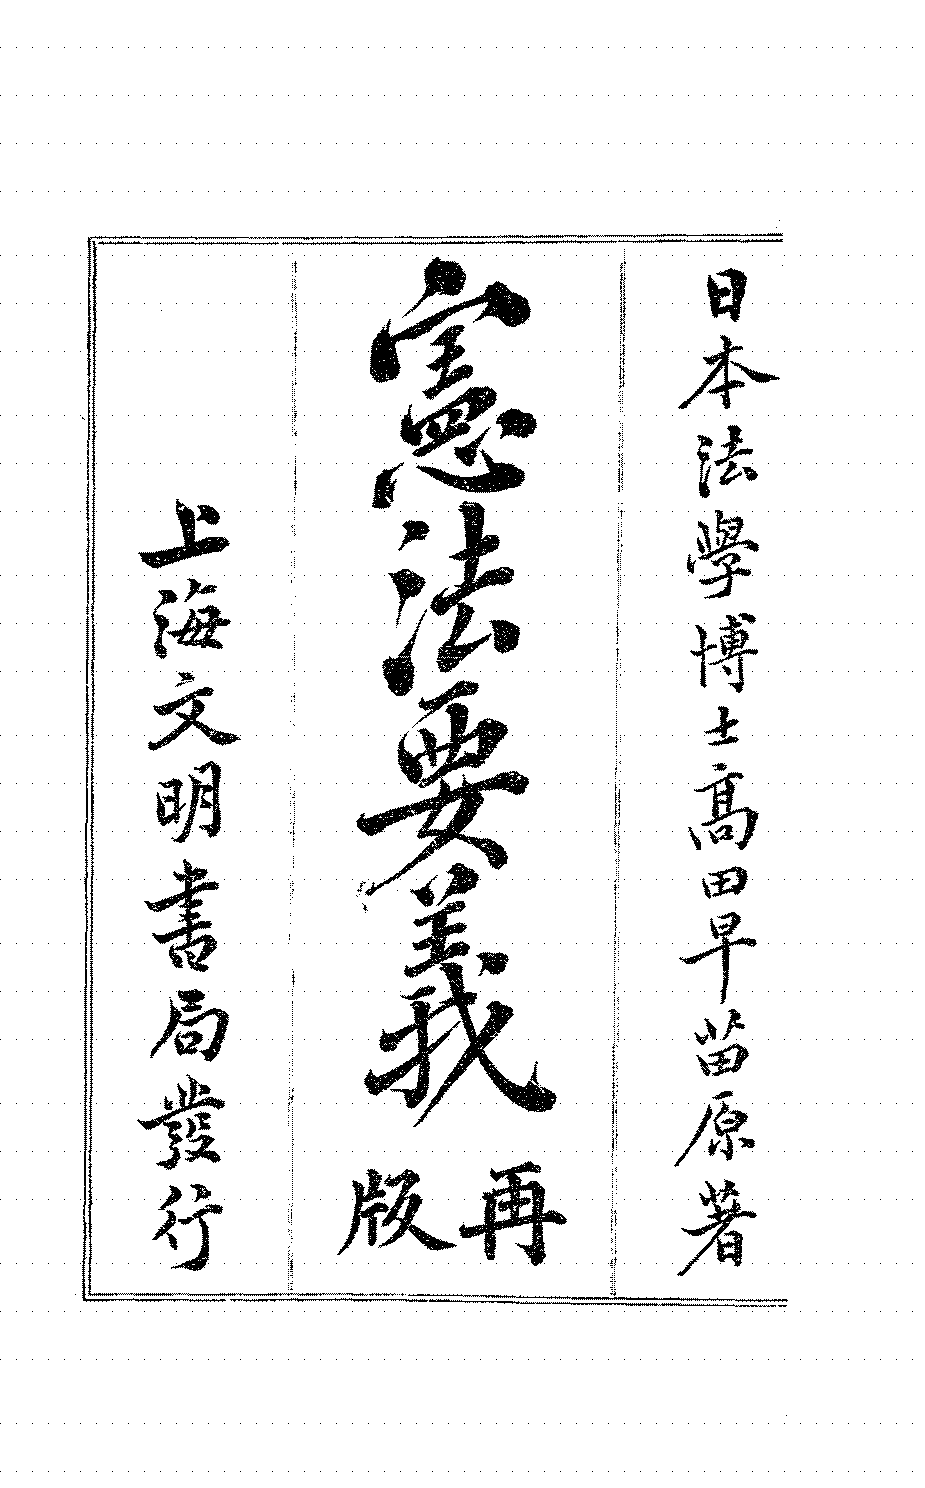 日本法學博士高田早苗原著
憲法要義
再版
上海文明書局發行